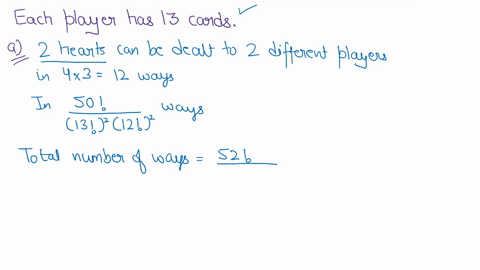 Each player has 13 cards. ✓
a) 2 hearts can be dealt to 2 different players
in 4x3 = 12 ways
In 50! / (13!)² (12!)² ways
Total number of ways = 52!